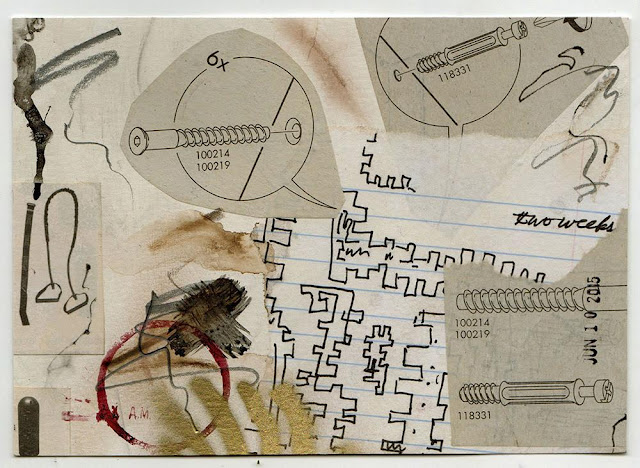 6x
100214
100219
118331
two weeks
100214
100219
JUN 10 2015
118331
A.M.